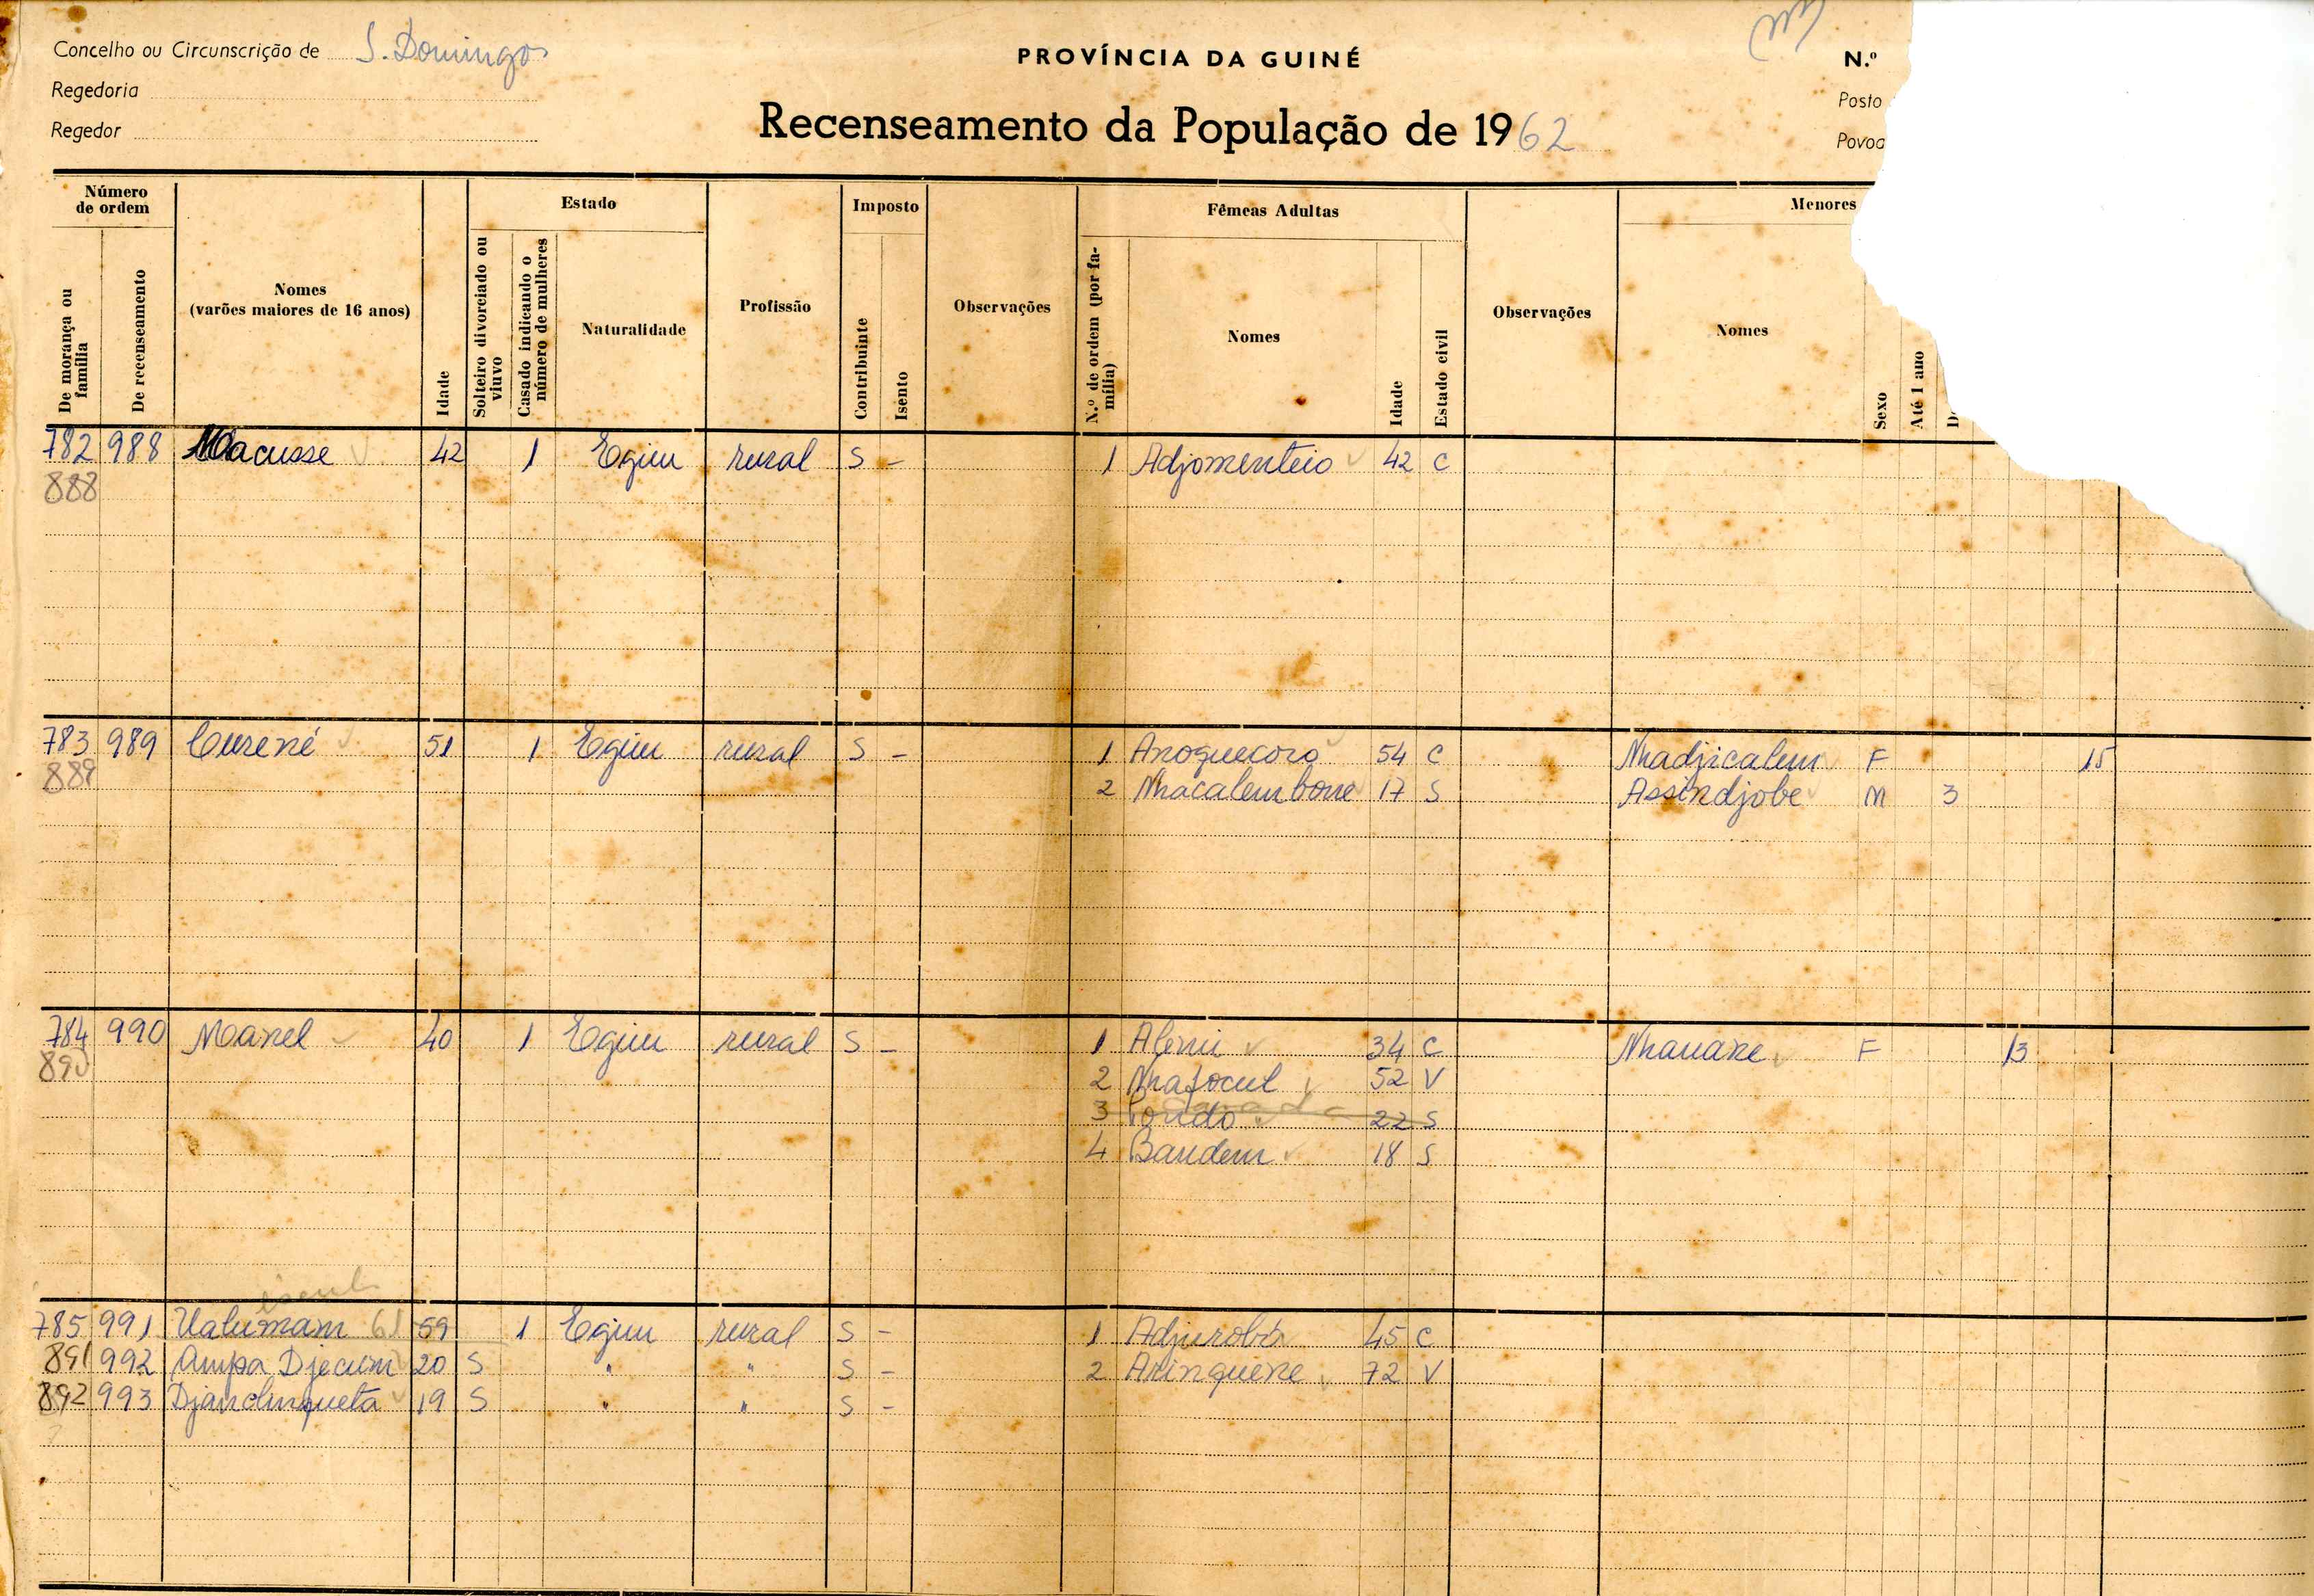 Concelho ou Circunscrição de S. Domingos
Regedoria
Regedor
PROVÍNCIA DA GUINÉ
Recenseamento da População de 1962
N.º
Posto
Povoa
Número de ordem
De morança ou família
De recenseamento
Nomes
(varões maiores de 16 anos)
Idade
Estado
Solteiro divorciado ou viuvo
Casado indicando o número de mulheres
Naturalidade
Profissão
Imposto
Contribuinte
Isento
Observações
Fêmeas Adultas
N.º de ordem (por família)
Nomes
Idade
Estado civil
Observações
Menores
Nomes
Sexo
Até 1 ano
782 988 Macusse 42 1 Egim rural S - 1 Adjomenteio 42 C
888
783 989 Curené 51 1 Egim rural S - 1 Anoquecoro 54 C Nhadjicalem F 15
889 2 Nhacalembone 17 S Assindjobe M 3
784 990 Manel 40 1 Egim rural S - 1 Alenii 34 C Nhauane F 13
890 2 Nhafocul 52 V
3 22 S
4 Baudem 18 S
785 991 Ualumam 61 59 1 Egim rural S - 1 Adjurobó 45 C
891 992 Ampa Djecum 20 S " " S - 2 Arinquene 72 V
892 993 Djanclinqueta 19 S " " S -